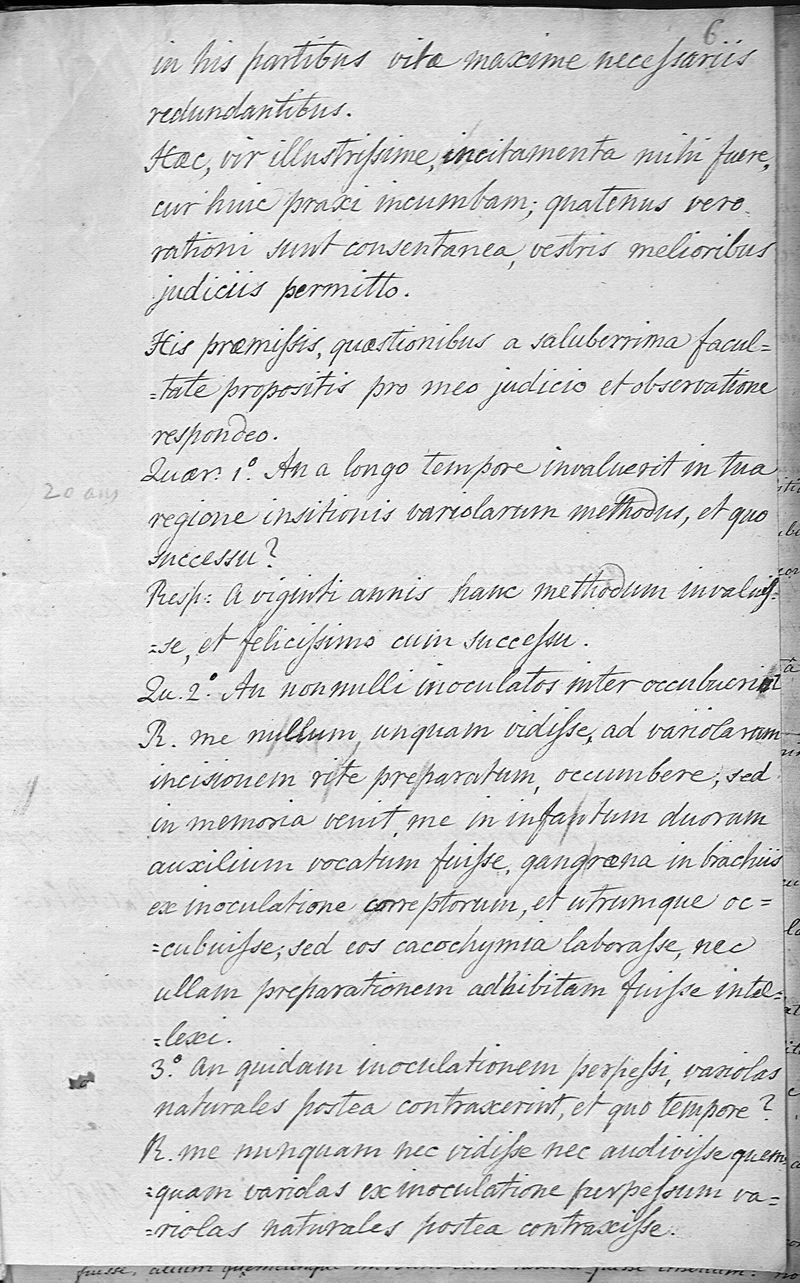 6
in his partibus vitæ maxime necessariis
redundantibus.
Hæc, vir illustrissime, incitamenta mihi fuere,
cur huic praxi incumbam; quatenus vero
rationi sunt consentanea, vestris melioribus
judiciis permitto.
His præmissis, quæstionibus a saluberrima facul=
=tate propositis pro meo judicio et observatione
respondeo.
Quær. 1.° An a longo tempore invaluerit in tua
20 ans
regione insitionis variolarum methodus, et quo
successu?
Resp: A viginti annis hanc methodum invaluis=
=se, et felicissimo cum successu.
Qu. 2.° An nonnulli inoculatos inter occubuerint
R. me nullum unquam vidisse, ad variolarum
incisionem rite preparatum, occumbere; sed
in memoria venit, me in infantum duorum
auxilium vocatum fuisse, gangræna in brachiis
ex inoculatione correptorum, et utrumque oc=
=cubuisse; sed eos cacochymia laborasse, nec
ullam preparationem adhibitam fuisse intel=
=lexi.
3.° An quidam inoculationem perpessi, variolas
naturales postea contraxerint, et quo tempore?
R. me nunquam nec vidisse nec audivisse quem
=quam variolas ex inoculatione perpessum va=
=riolas naturales postea contraxisse.